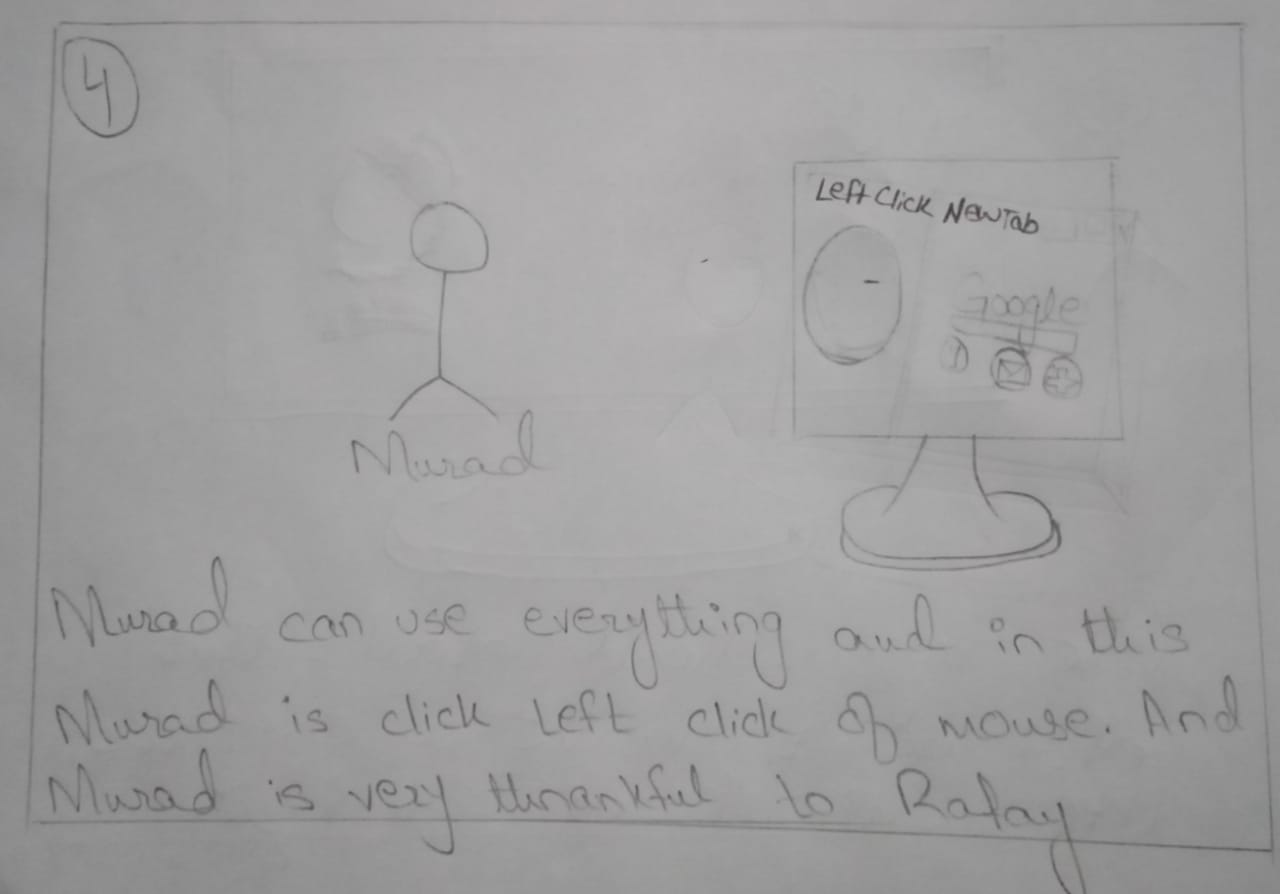 4
Left Click New Tab
Google
Murad
Murad can use everything and in this
Murad is click Left click of mouse. And
Murad is very thnankful to Rafay